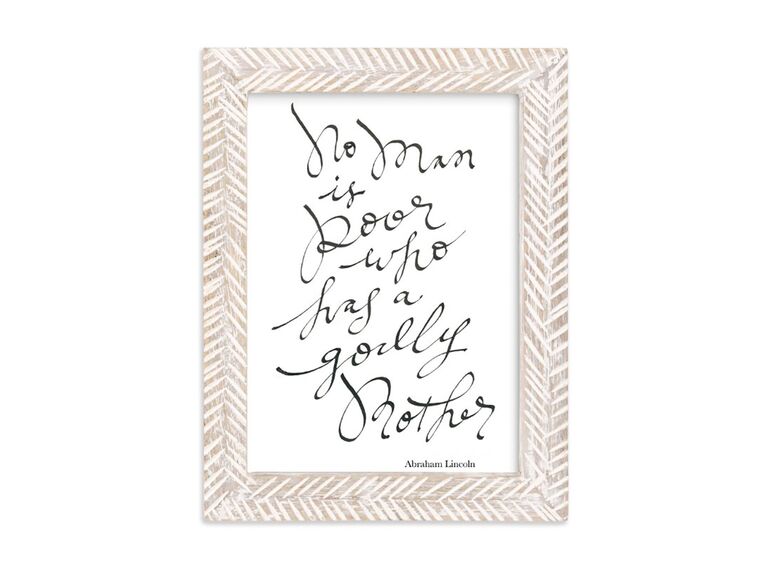 No Man
is
Poor
who
has a
godly
Mother
Abraham Lincoln